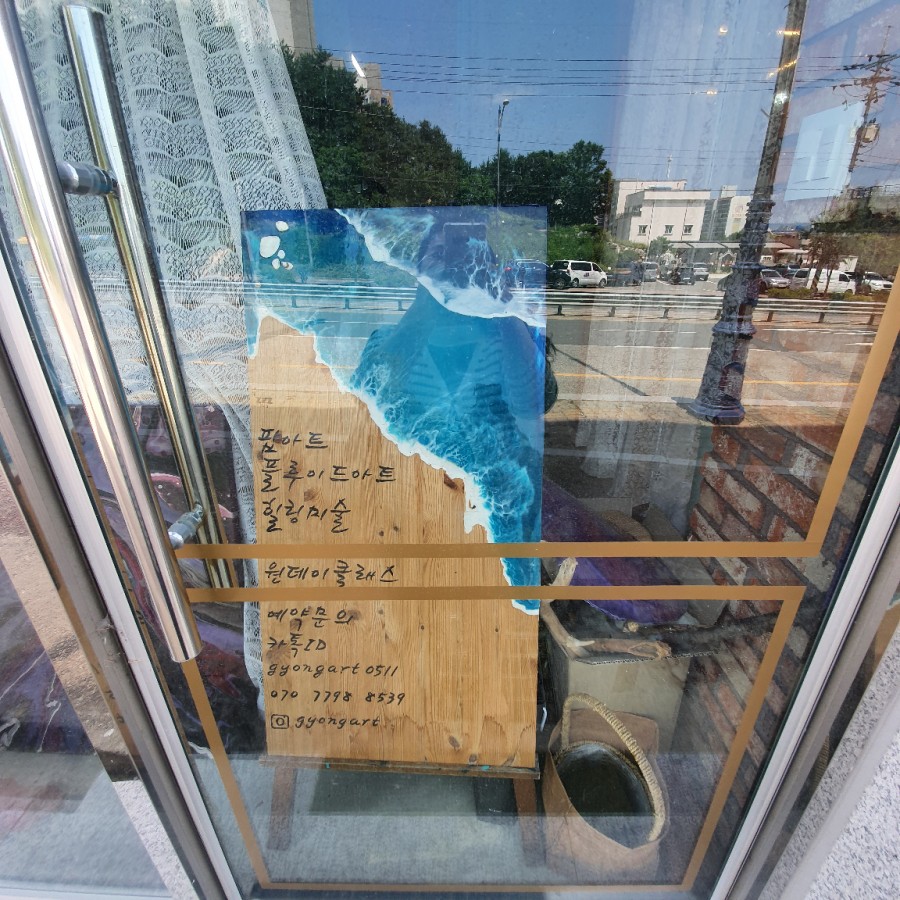 팝아트
플루이드아트
힐링미술
원데이클래스
예약문의
카톡ID
gyongart0511
070 7798 8539
gyongart